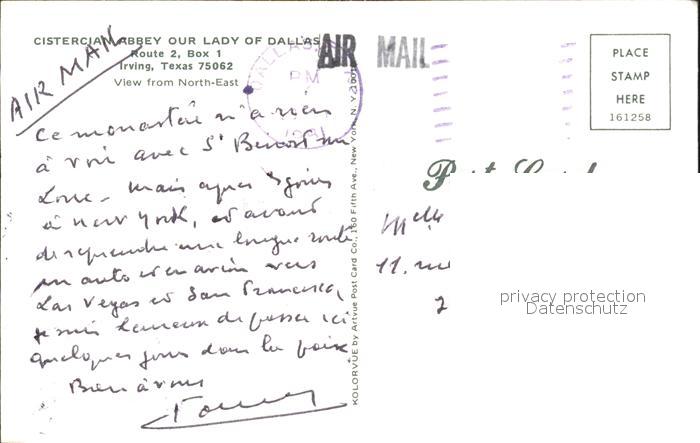 CISTERCIAN ABBEY OUR LADY OF DALLAS
Route 2, Box 1
Irving, Texas 75062
View from North-East
AIR MAIL
AIR MAIL
DALLAS
PM
PLACE
STAMP
HERE
161258
Ce monastère n'a rien
à voir avec St Benoit sur
Loire - mais après 3 jours
à New York, et avant
de reprendre une longue route
en auto et en avion vers
Las Vegas et San Francisco,
je suis heureux de passer ici
quelques jours dans la paix
Bien à vous
KOLORVUE by Artvue Post Card Co., 160 Fifth Ave., New York, N. Y.
Post Card
Melle
11. rue
privacy protection
Datenschutz